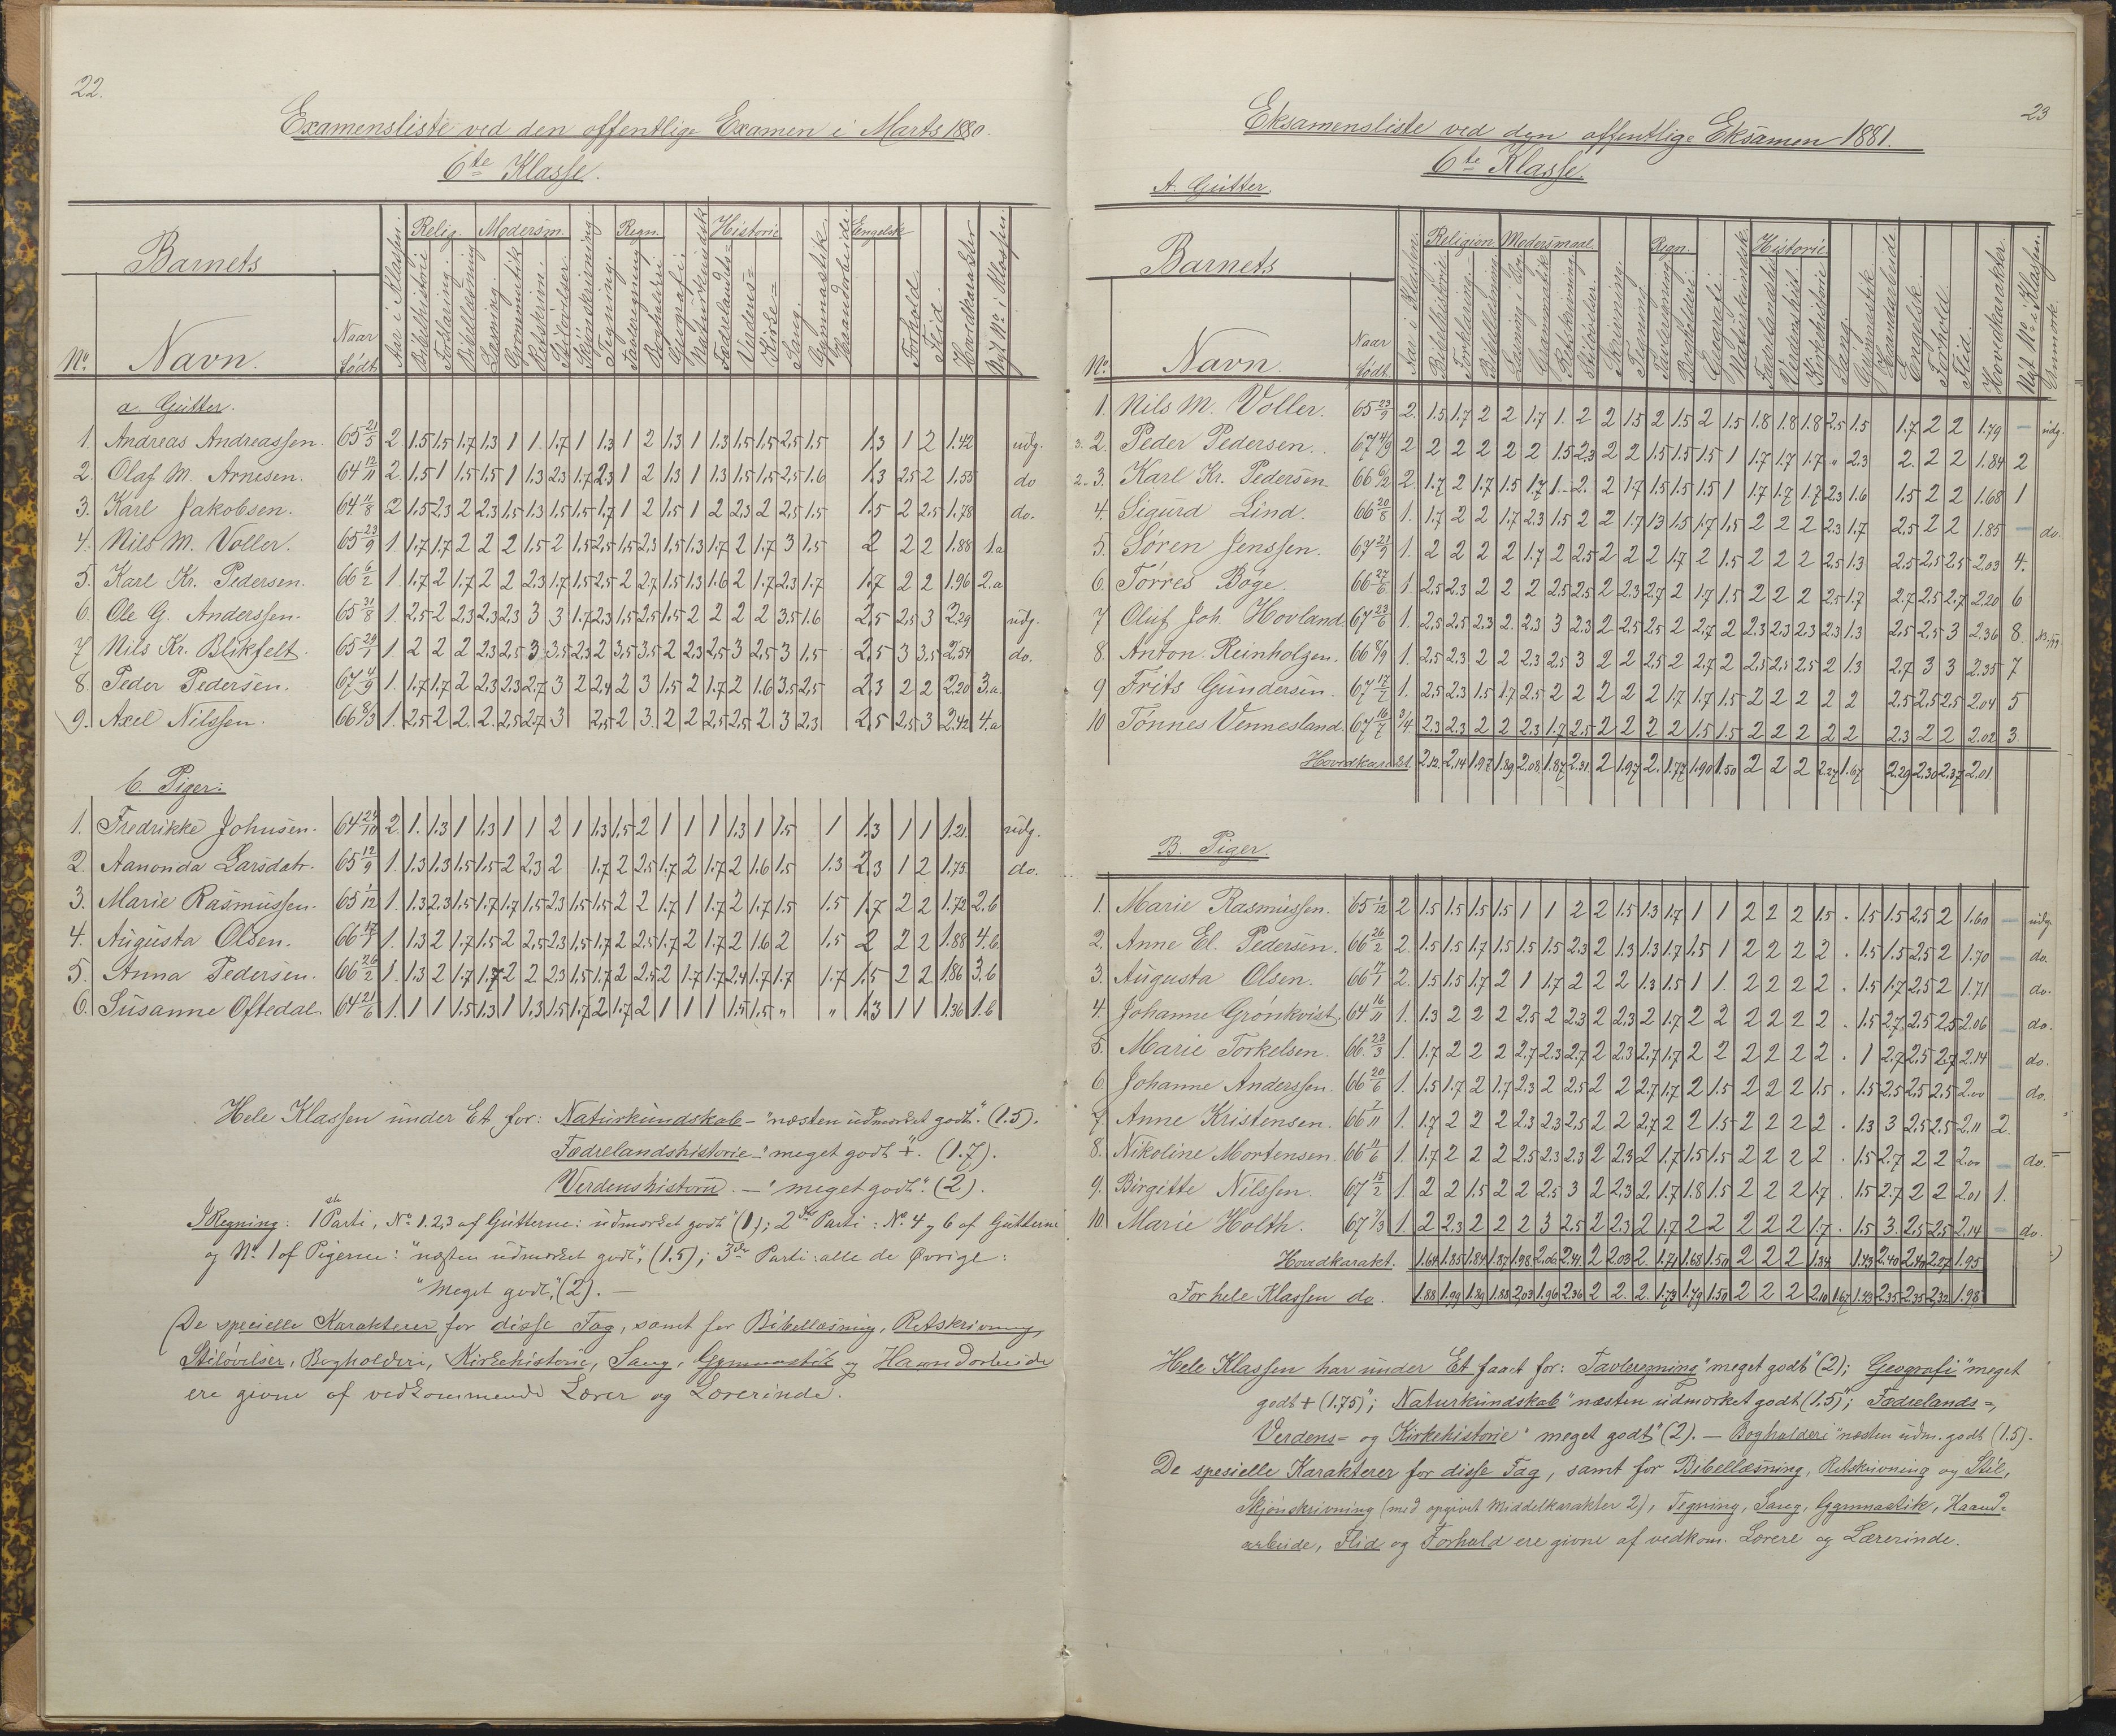 22.
Examensliste ved den offentlige Examen i Marts 1880.
6te Klasse.
Barnets
Relig. Modersm. Regn. Historie Engelsk
No. Navn. Naar født Aar i Klassen. Bibelhistorie Forklaring Bibellæsning Læsning. Grammatik Retskrivn. Stiløvelser Skjønskrivning. Tegning. Tavleregning Bogholderi Geografi. Naturkundskab Fædrelands= Verdens= Kirke= Sang. Gymnastik. Haandarbeide. Forhold Flid. Hovedkarakter Nyt No. i Klassen.
a. Gutter.
1. Andreas Andreassen. 65 21/5 2 1.5 1.5 1.7 1.3 1 1 1.7 1 1.3 1 2 1.3 1 1.3 1.5 1.5 2.5 1.5 1.3 1 2 1.42 udg.
2. Olaf M. Arnesen. 64 12/11 2 1.5 1 1.5 1.5 1 1.3 2.3 1.7 2.3 1 2 1.3 1 1.3 1.5 1.5 2.5 1.6 1.3 2.5 2 1.55 do
3. Karl Jakobsen. 64 11/8 2 1.5 2.3 2 2.3 1.5 1.3 1.5 1.5 1.7 1 2 1.5 1 2 2.3 2 2.5 1.5 1.5 2 2.5 1.78 do.
4. Nils M. Voller. 65 23/9 1 1.7 1.7 2 2 2 1.5 2 1.5 2.5 1.5 2.3 1.5 1.3 1.7 2 1.7 3 1.5 2 2 2 1.88 1.a
5. Karl Kr. Pedersen. 66 6/2 1 1.7 2 1.7 2 2 2.3 1.7 1.5 2.5 2 2.7 1.5 1.3 1.6 2 1.7 2.3 1.7 1.7 2 2 1.96 2.a
6. Ole G. Anderssen. 65 31/8 1. 2.5 2 2.3 2.3 2.3 3 3 1.7 2.3 1.5 2.5 1.5 2 2 2 2 3.5 1.6 2.5 2.5 3 2.29 udg.
7 Nils Kr. Blikfelt. 65 29/1 1. 2 2 2 2.3 2.5 3 3.5 2.3 2 3.5 3.5 2 2.3 2.5 3 2.5 3 1.5 2.5 3 3.5 2.54 do.
8. Peder Pedersen. 67 4/9 1. 1.7 1.7 2 2.3 2.3 2.7 3 2 2.4 2 3 1.5 2 1.7 2 1.6 3.5 2.5 2.3 2 2 2.20 3.a.
9. Axel Nilssen. 66 8/3 1. 2.5 2 2. 2. 2.5 2.7 3 2.5 2 3. 2 2 2.5 2.5 2 3 2.3 2.5 2.5 3 2.42 4.a
b. Piger:
1. Fredrikke Johnsen. 64 29/10 2. 1. 1.3 1 1.3 1 1 2 1 1.3 1.5 2 1 1 1 1.3 1 1.5 1 1.3 1 1 1.21. udg.
2. Aanonda Larsdatr. 65 12/9 1. 1.3 1.3 1.5 1.5 2 2.3 2 1.7 2 2.5 1.7 2 1.7 2 1.6 1.5 1.3 2.3 1 2 1.75. do.
3. Marie Rasmussen. 65 1/12 1. 1.3 2.3 1.5 1.7 1.7 1.5 2.3 1.5 1.5 2 2 1.7 1 1.7 2 1.7 1.5 1.5 1.7 2 2 1.72 2.b
4. Augusta Olsen. 66 17/1 1. 1.3 2 1.7 1.5 2 2.5 2.3 1.5 1.7 2 2.5 1.7 2 1.7 2 1.6 2 1.5 2 2 2 1.88 4.b.
5. Anna Pedersen. 66 26/2 1. 1.3 2 1.7 1.7 2 2 2.3 1.5 1.7 2 2.5 2 1.7 1.7 2.4 1.7 1.7 1.7 1.5 2 2 1.86 3.b
6. Susanne Oftedal. 64 21/6 1. 1 1 1.5 1.3 1 1.3 1.5 1.7 2 1.7 2 1 1 1 1.5 1.5 " " 1.3 1 1 1.36 1.b
Hele Klassen under Et, for: Naturkundskab - "næsten udmærket godt." (1.5).
Fædrelandshistorie - "meget godt +". (1.7).
Verdenshistorie. - "meget godt". (2).
I Regning: 1ste Parti, No. 1.2.3 af Gutterne: udmærket godt "(1); 2det Parti: No. 4 og 6 af Gutterne
og No. 1 af Pigerne: "næsten udmærket godt", (1.5); 3die Parti: alle de Øvrige:
"Meget godt", (2). -
De specielle Karakterer for disse Fag, samt for Bibellæsning, Retskrivning,
Stiløvelser, Bogholderi, Kirkehistorie, Sang, Gymnastik og Haandarbeide
ere givne af vedkommende Lærer og Lærerinde.
23
Eksamensliste ved den offentlige Eksamen 1881.
6te Klasse.
A. Gutter.
Barnets
Religion Modersmaal. Regn. Historie
No. Navn. Naar født. Aar i Klassen. Bibelhistorie Forklaring. Bibellæsning. Læsning Grammatik Retskrivning Stiløvelser. Skrivning. Tegning. Tavleregning. Bogholderi. Geografi. Naturkundsk. Fædrelandshist. Verdenshist. Kirkehistorie Sang. Gymnastik. Haandarbeide Engelsk. Forhold. Flid. Hovedkarakter. Nyt No. i Klassen. Anmærk.
1. Nils M. Voller. 65 23/9 2. 1.5 1.7 2 2 1.7 1. 2 2 1.5 2 1.5 2 1.5 1.8 1.8 1.8 2.5 1.5 1.7 2 2 1.79 - udg.
3. 2. Peder Pedersen. 67 4/9 2 2 2 2 2 2 1.5 2.3 2 2 1.5 1.5 1.5 1 1.7 1.7 1.7 " 2.3 2. 2 2 1.84 2
2. 3. Karl Kr. Pedersen 66 6/2 2. 1.7 2 1.7 1.5 1.7 1. 2. 2 1.7 1.5 1.5 1.5 1 1.7 1.7 1.7 2.3 1.6 1.5 2 2 1.68 1
4. Sigurd Lind. 66 20/8 1. 1.7 2 2 1.7 2.3 1.5 2 2 1.7 1.3 1.5 1.7 1.5 2 2 2 2.3 1.7 2.5 2 2 1.85 - do.
5. Søren Jenssen. 67 21/9 1. 2 2 2 2 1.7 2 2.5 2 2 2 1.7 2 1.5 2 2 2 2.5 1.3 2.5 2.5 2.5 2.03 4.
6. Torres Boge. 66 27/6 1. 2.5 2.3 2 2 2 2.5 2.5 2 2.3 2.7 2 1.7 1.5 2 2 2 2.5 1.7 2.7 2.5 2.7 2.20 6
7 Oluf Joh. Hovland 67 23/6 1. 2.5 2.5 2.3 2. 2.3 3 2.3 2 2.5 2.5 2 2.7 2 2.3 2.3 2.3 2.3 1.3 2.5 2.5 3 2.36 8
8. Anton Reinholgen. 66 8/9 1. 2.5 2.3 2 2 2.3 2.5 3 2 2 2.5 2 2.7 2 2.5 2.5 2.5 2 1.3 2.7 3 3 2.35 7
9 Frits Gundersen. 67 17/7 1. 2.5 2.3 1.5 1.7 2.5 2 2 2 2 2 1.7 1.7 1.5 2 2 2 2 2 2.5 2.5 2.5 2.04 5
10 Tønnes Vennesland. 67 16/7 3/4. 2.3 2.3 2 2 2.3 1.7 2.5 2 2 2 2 1.5 1.5 2 2 2 2 2 2.3 2 2 2.02 3
Hovedkarakt. 2.12 2.14 1.97 1.89 2.08 1.87 2.31 2 1.97 2. 1.77 1.90 1.50 2 2 2 2.27 1.67 2.29 2.30 2.37 2.01
B. Piger.
1. Marie Rasmussen. 65 1/12 2 1.5 1.5 1.5 1.5 1 1 2 2 1.5 1.3 1.7 1 1 2 2 2 1.5 . 1.5 1.5 2.5 2 1.60 - udg.
2. Anne El. Pedersen. 66 26/2 2. 1.5 1.5 1.7 1.5 1.5 1.5 2.3 2 1.3 1.3 1.7 1.5 1 2 2 2 2 . 1.5 1.5 2.5 2 1.70 - do.
3. Augusta Olsen. 66 17/1 2. 1.5 1.5 1.7 2 1 1.7 2 2 2 1.3 1.5 1 1. 2 2 2 2 . 1.5 1.7 2.5 2 1.71 - do.
4. Johanne Grønkvist. 64 16/11 1. 1.3 2 2 2 2.5 2 2.3 2 2.3 2 1.7 2 2 2 2 2 2 . 1.5 2.7 2.5 2.5 2.06 - do.
5. Marie Torkelsen. 66 23/3 1. 1.7 2 2 2 2.7 2.3 2.7 2 2.3 2.7 1.7 2 2 2 2 2 2 . 1 2.7 2.5 2.7 2.14 - do.
6. Johanne Anderssen. 66 20/6 1. 1.5 1.7 2 1.7 2.3 2 2.5 2 2 2.7 1.7 2 1.5 2 2 2 1.5 . 1.5 2.5 2.5 2.5 2.00 - do.
7. Anne Kristensen. 66 7/11 1. 1.7 2 2 2 2.3 2.3 2.5 2 2 2.7 2 2 1.5 2 2 2 2 . 1.3 3 2.5 2.5 2.11 2.
8. Nikoline Mortensen. 66 11/6 1. 1.7 2 2 2 2.5 2.3 2.3 2 2.3 2 1.7 1.5 1.5 2 2 2 2 . 1.5 2.7 2 2 2.00 - do.
9. Birgitte Nilssen. 67 15/2 1. 2 2 1.5 2 2 2.5 3 2 2.3 2. 1.7 1.8 1.5 2 2 2 1.7 . 1.5 2.7 2 2 2.01 1.
10. Marie Holth. 67 7/3 1. 2 2.3 2 2 2 3 2.5 2 2.3 2 1.7 2 2 2 2 2 1.7 . 1.5 3. 2.5 2.5 2.14 - do.
Hovedkarakt. 1.64 1.85 1.84 1.87 1.98 2.06 2.41 2 2.03 2. 1.71 1.68 1.50 2 2 2 1.84 1.43 2.40 2.40 2.27 1.95
For hele Klassen do. 1.88 1.99 1.89 1.88 2.03 1.96 2.36 2 2. 2. 1.73 1.79 1.50 2 2 2 2.10 1.67 1.43 2.35 2.35 2.32 1.98
Hele Klassen har under Et faaet for: Tavleregning "meget godt" (2); Geografi "meget
godt + (1.75)"; Naturkundskab "næsten udmærket godt (1.5)"; Fædrelands=,
Verdens= og Kirkehistorie "meget godt" (2). - Bogholderi "næsten udm. godt (1.5).
De spesielle Karakterer for disse Fag, samt for Bibellæsning, Retskrivning og Stil,
Skjønskrivning (med opgivet Middelkarakter 2), Tegning, Sang, Gymnastik, Haand=
arbeide, Flid og Forhold ere givne af vedkom. Lærere og Lærerinde.